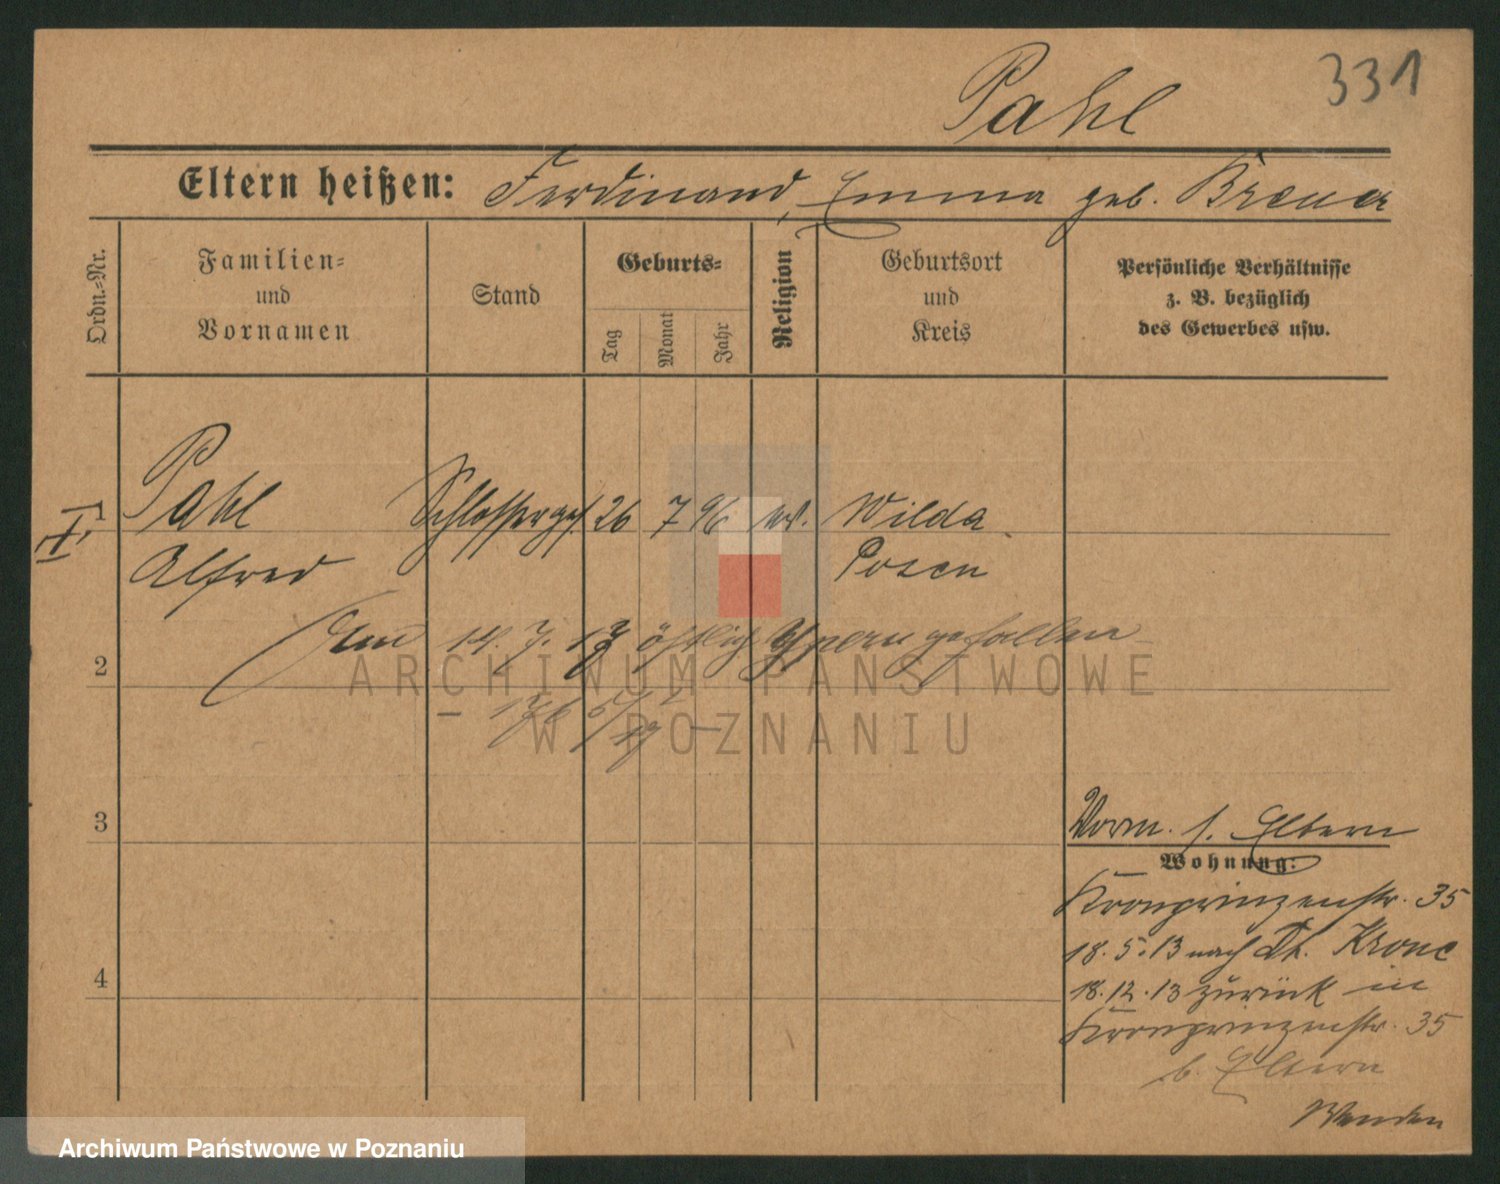 331
Pahl
Eltern heißen: Ferdinand, Emma geb. Breuer
Ordn.-Nr.
Familien-
und
Vornamen
Stand
Geburts-
Tag
Monat
Jahr
Religion
Geburtsort
und
Kreis
Persönliche Verhältnisse
z. B. bezüglich
des Gewerbes usw.
1 Pahl Schlosserges. 26 7 96 ev. Wilda
Alfred Posen
Am 14. 7. 17 östlich Ypern gefallen
2
3
4
Vorm. s. Eltern
Wohnung:
Kronprinzenstr. 35
18. 5. 13 nach Dt. Krone
18. 12. 13 zurück in
Kronprinzenstr. 35
b. Eltern
Wenden
ARCHIWUM PAŃSTWOWE
W POZNANIU
Archiwum Państwowe w Poznaniu